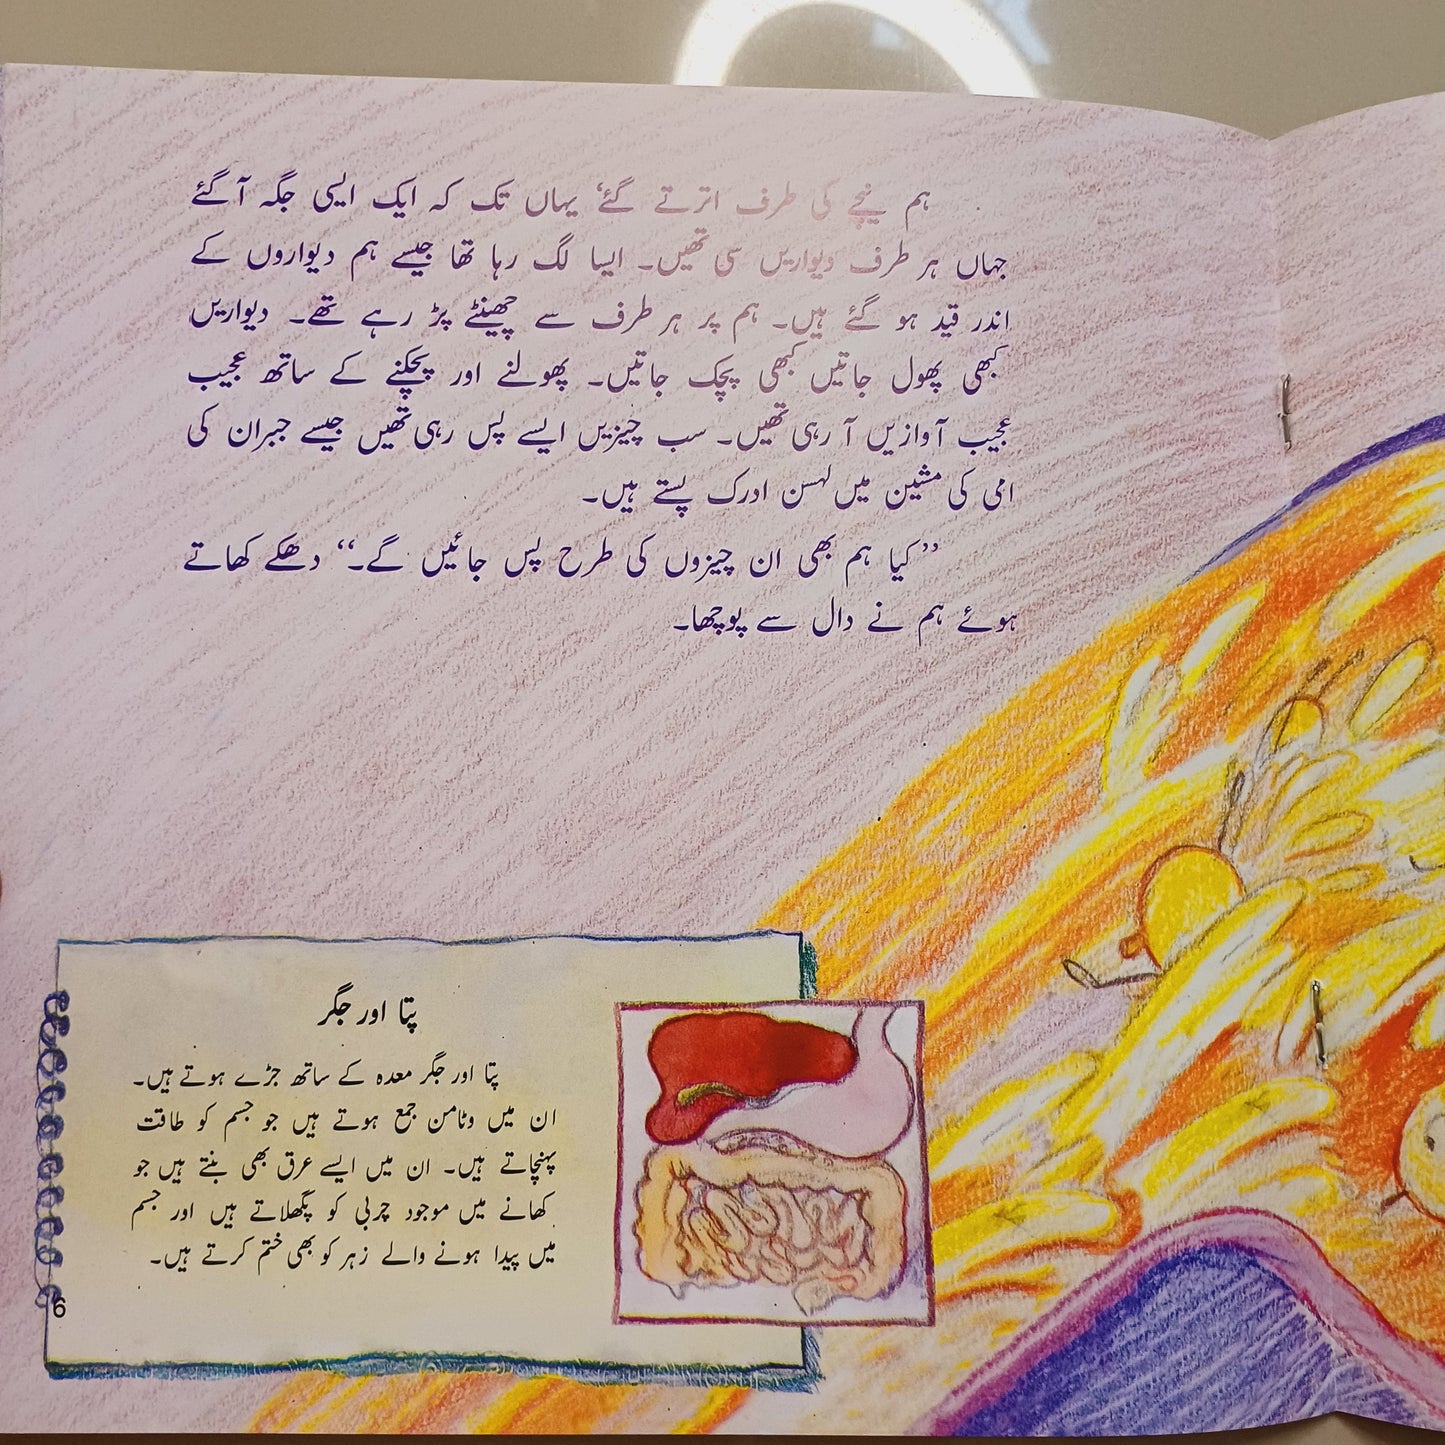 ہم نیچے کی طرف اترتے گئے، یہاں تک کہ ایک ایسی جگہ آگئے
جہاں ہر طرف دیواریں سی تھیں۔ ایسا لگ رہا تھا جیسے ہم دیواروں کے
اندر قید ہو گئے ہیں۔ ہم پر ہر طرف سے چھینٹے پڑ رہے تھے۔ دیواریں
کبھی پھول جاتیں کبھی پچک جاتیں۔ پھولنے اور پچکنے کے ساتھ عجیب
عجیب آوازیں آ رہی تھیں۔ سب چیزیں ایسے پس رہی تھیں جیسے جبران کی
امی کی مشین میں لہسن ادرک پستے ہیں۔
”کیا ہم بھی ان چیزوں کی طرح پس جائیں گے۔“ دھکے کھاتے
ہوئے ہم نے دال سے پوچھا۔
پتا اور جگر
پتا اور جگر معدہ کے ساتھ جڑے ہوتے ہیں۔
ان میں وٹامن جمع ہوتے ہیں جو جسم کو طاقت
پہنچاتے ہیں۔ ان میں ایسے عرق بھی بنتے ہیں جو
کھانے میں موجود چربی کو پگھلاتے ہیں اور جسم
میں پیدا ہونے والے زہر کو بھی ختم کرتے ہیں۔
6